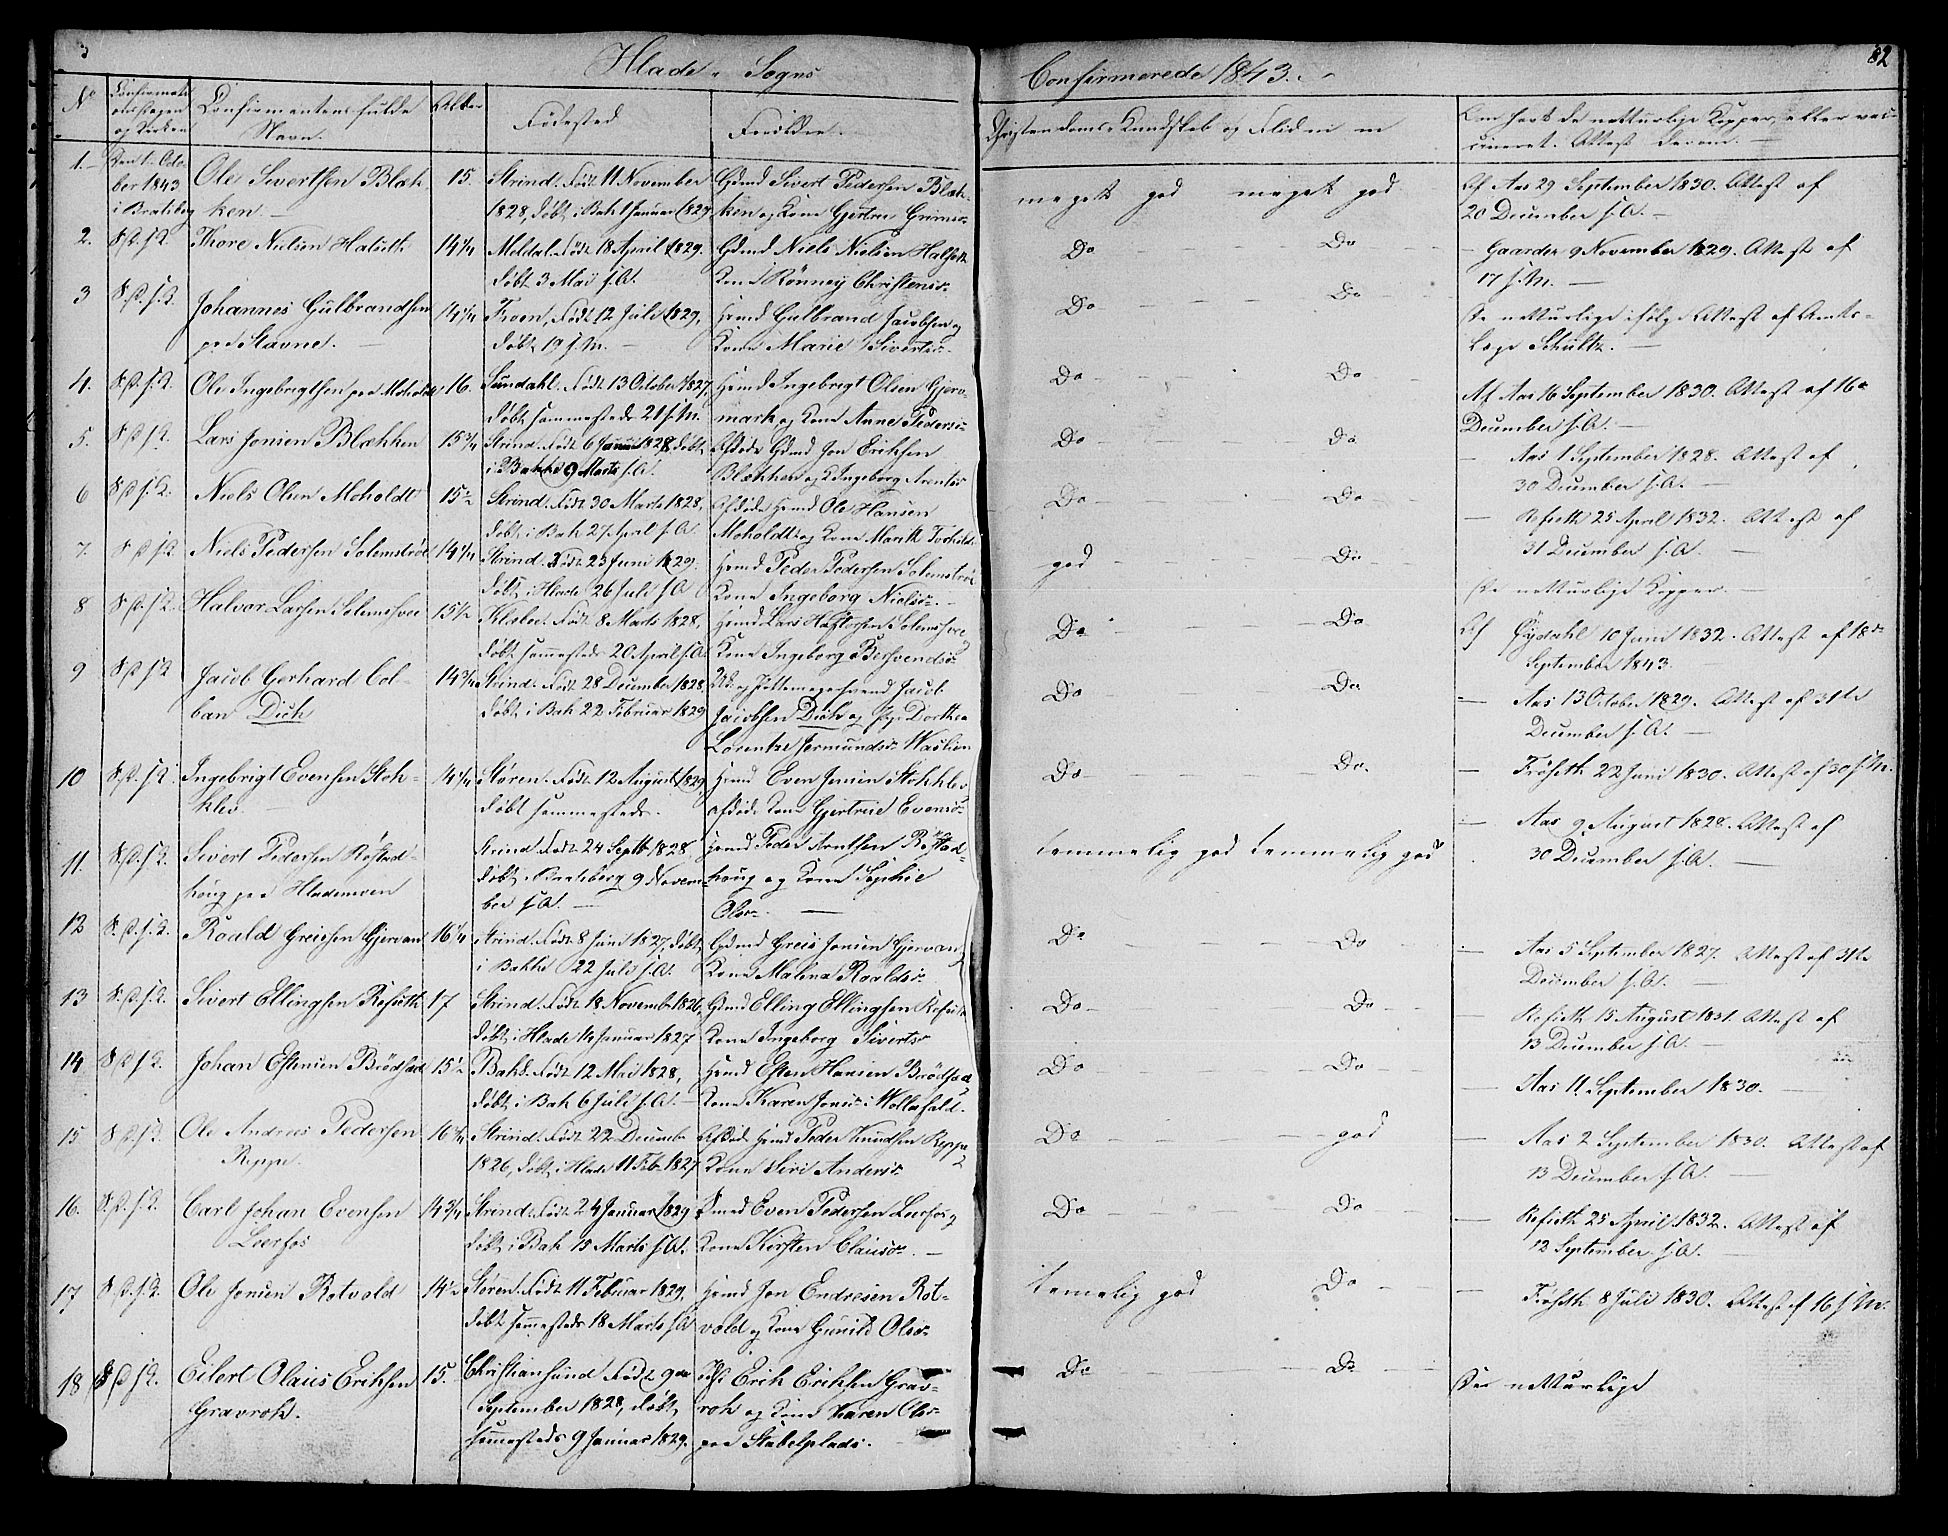 Hlade Sogns
Confirmerede 1843.
82
No
Confirmentens fulde Navn.
Alder
Fødested
Forældre.
Christendoms Kundskab og Flid
Om havt de naturlige Kopper, eller vaccineret. Attest derom.
1. Den 1. October 1843 i Bratsberg
Ole Sivertsen Blækken.
15.
Strind. Født 11 November 1828, døbt i Bak 1 Januar 1829
Gdmd Sivert Pedersen Blækken og Kone Gjertru
meget god meget god
Af Aas 29 September 1830. Attest af 20 December s. A.
2.
Thore Nielsen
14 1/4
Meldal. Født 18 April 1829. døbt 3 Mai s. A.
Gdmd Niels Nielsen Kone Rønney Christensd.
Do Do
Gaarder 9 November 1829. Attest af 17 s. M.
3
Johannes Gulbrandsen paa Stavne.
14 1/4
Født 12 Juli 1829, døbt 19 s. M.
Hmd Gulbrand Jacobsen og Kone Marie Sivertsd.
Do Do
De naturlige ifølge Attest af Amts-Læge Schultz.
4.
Ole Ingebrigtsen paa Moholdt
16.
Sundahl. Født 13 October 1827, døbt sammesteds 21 s. M.
Hmd Ingebrigt Olsen mark og Kone Anne Pedersd.
Do Do
Af Aas 16 September 1830. Attest af 16 December s. A.
5.
Lars Jonsen Blækken
15 3/4
Strind. Født 6 Januar 1828, døbt i Bakke 9 Marts s. A.
Afdøde Gdmd Jon Eriksen Blækken og K Ingeborg Arentsd.
Do Do
Aas 1 September 1828. Attest af 30 December s. A.
6
Niels Olsen Moholdt
15 1/2
Strind. Født 30 Marts 1828, døbt i Bak 27 April s. A.
Afdøde Hmd Ole Hansen Moholdt og Kone Marit
Do Do
Refseth 25 April 1832. Attest af 31 December s. A.
7.
Niels Pedersen
14 1/4
Strind. Født 23 Juni 1829. døbt i Hlade 26 Juli s. A.
Hmd Peder Pedersen Kone Ingeborg Nielsd.
god Do
De naturlige Kopper.
8
Halvor Larsen
15 1/2
Klæboe. Født 8 Marts 1828, døbt sammesteds 20 April s. A.
Hmd Lars Kone Ingeborg
Do Do
Af Øydahl 10 Juni 1832. Attest af 18de September 1843.
9
Jacob Gerhard Colban Dich
14 3/4
Strind. Født 28 December 1828, døbt i Bak 22 Februar 1829
Jacob Jacobsen Dich og Dorthea Lorentze
Do Do
Aas 13 October 1829. Attest af 31te December s. A.
10
Ingebrigt Evensen
14 1/4
Støren. Født 12 August 1829, døbt sammesteds.
Hmd Even Jonsen afdøde Kone Gjertrue Evensd.
Do Do.
Frøseth 22 Juni 1830. Attest af 30 s. M.
11.
Sivert Pedersen Røstadhoug paa Hlademoen
Strind. Født 24 Septb 1828 døbt Bratsberg 9 November s. A.
Hmd Peder Arntsen Røstadhoug og Kone Sophie Olsd.
temmelig god temmelig god
Aas 9 August 1828. Attest af 30 December s. A.
12
Roald Greisen Gjervan
16 1/4
Strind. Født 8 Juni 1827, døbt i Bakke 22 Juli s. A.
Gdmd Greis Jonsen Gjervan Kone Malena Roaldsd.
Do Do
Aas 5 September 1827. Attest af 31te December s. A.
13
Sivert Ellingsen Refseth
17
Strind. Født 18 Novemb 1826, døbt i Hlade 14 Januar 1827
Gdmd Elling Ellingsen Refseth Kone Ingeborg Sivertsd.
Do Do
Refseth 15 August 1831. Attest af 13 December s. A.
14
Johan Estensen
15 1/2
Bakl. Født 12 Mai 1828, døbt i Bak 6 Juli s. A.
Hmd Esten Hansen Kone Karen Jonsd.
Do Do
Aas 11 September 1830.
15
Ole Andreas Pedersen Reppe.
16 3/4
Strind. Født 22 December 1826, døbt i Hlade 11 Feb 1827
Afdøde Hmd Peder Knudsen Reppe Kone Siri Andersd.
Do god
Aas 2 September 1830. Attest af 13 December s. A.
16.
Carl Johan Evensen Leerfos
14 3/4
Strind. Født 24 Januar 1829 døbt i Bak 15 Marts s. A.
Even Pedersen Leerfos Kone Kirsten Clausd.
Do Do
Refseth 25 April 1832. Attest af 12 September s. A.
17
Ole Jonsen Rotvold
14 1/2
Støren. Født 11 Februar 1829, døbt sammesteds 18 Marts s. A.
Hmd Jon Endresen Rotvold og Kone Gunild Olsd.
temelig god Do
Frøseth 8 Juli 1830. Attest af 16 s. M.
18
Eilert Olaus Eriksen Gravrok.
15.
Christiansund Født 9de September 1828, døbt sammesteds 9 Januar 1829.
Erik Eriksen Gravrok og Kone Karen Olsd. paa Stabelplads.
Do Do
De naturlige